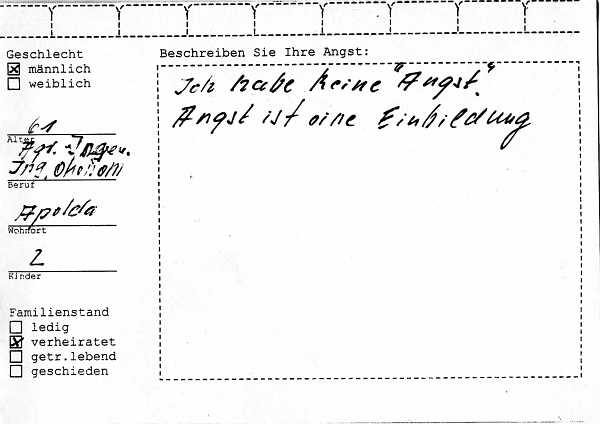 Geschlecht
☒ männlich
☐ weiblich
61
Alter
Agr. Ingen.
Ing. Ökonom
Beruf
Apolda
Wohnort
2
Kinder
Familienstand
☐ ledig
☒ verheiratet
☐ getr.lebend
☐ geschieden
Beschreiben Sie Ihre Angst:
Ich habe keine "Angst".
Angst ist eine Einbildung